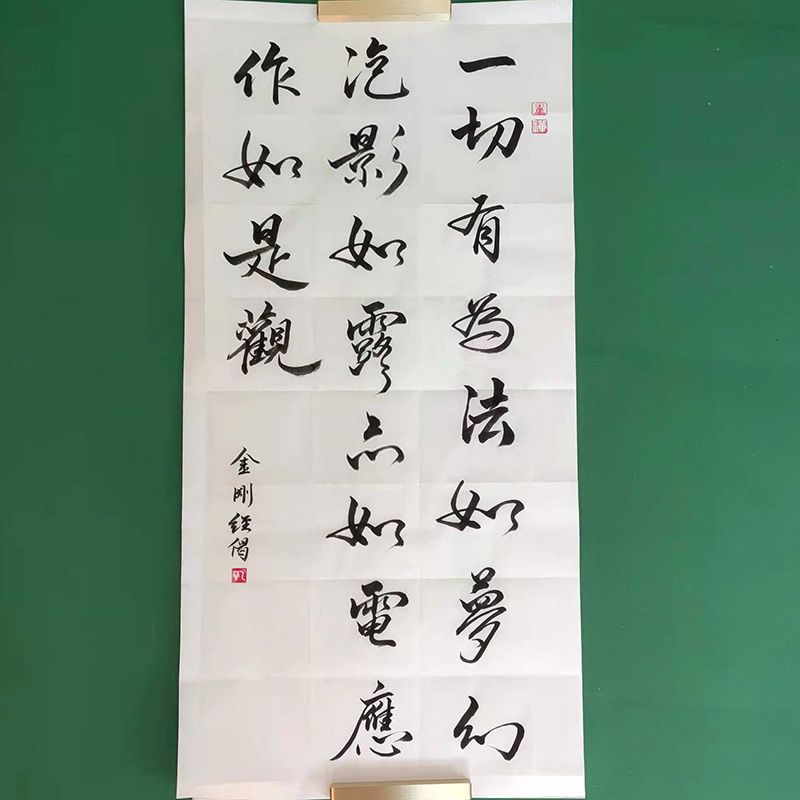 一切有為法如夢幻
泡影如露亦如電應
作如是觀
金剛經偈